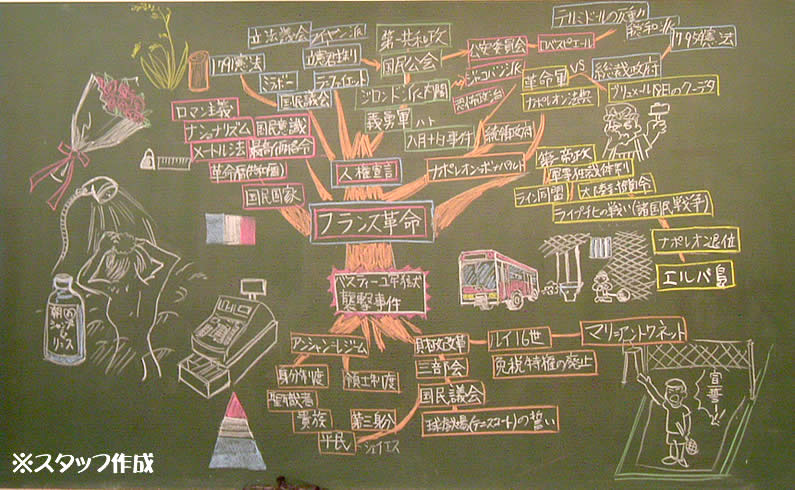 テルミドールの反動
立法議会
フイヤン派
第一共和政
穏和派
1791憲法
立憲君主制
国民公会
公安委員会
ロベスピエール
1795憲法
ミラボー
ラ・ファイエット
ジャコバン派
革命軍
VS
総裁政府
国民議会
ジロンド派内閣
恐怖政治
ナポレオン法典
ブリュメール18日のクーデタ
ロマン主義
義勇軍
ナショナリズム
国民意識
8月10日事件
統領政府
メートル法
最高価格令
第一帝政
革命暦(共和暦)
人権宣言
ナポレオン・ボナパルト
軍事独裁体制
国民国家
ライン同盟
大陸封鎖令
フランス革命
ライプチヒの戦い(諸国民戦争)
ナポレオン退位
エルバ島
バスティーユ牢獄
襲撃事件
朝
シャンプー
リンス
アンシャン=レジーム
財政改革
ルイ16世
マリ=アントワネット
身分制度
領主制度
三部会
免税特権の廃止
聖職者
国民議会
宣誓!
貴族
第三身分
球戯場(テニスコート)の誓い
平民
シェイエス
※スタッフ作成